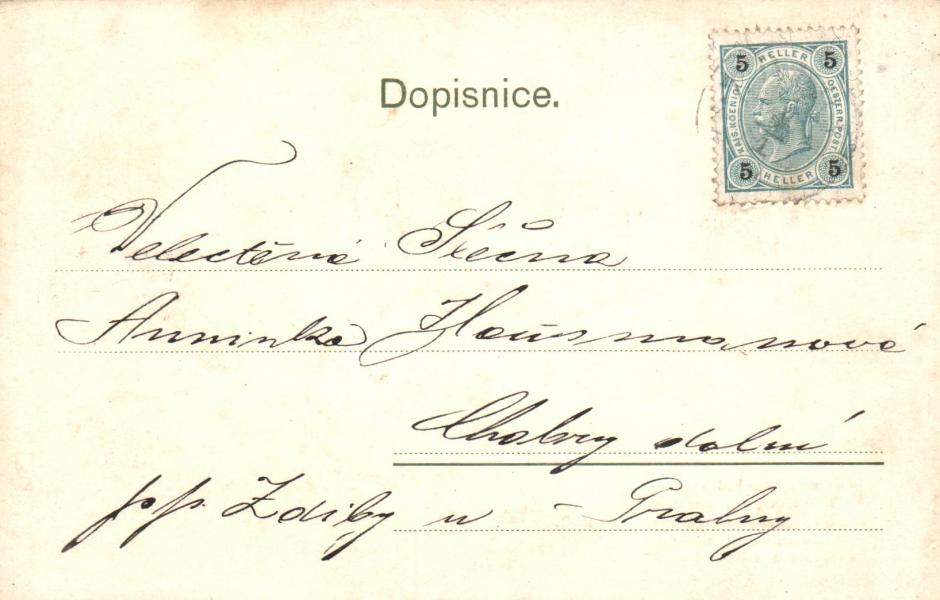 Dopisnice.
5 HELLER 5
KAIS. KOENIGL. OESTERR. POST.
5 HELLER 5
Velectěná Slečna
Anninka Hausmanová
Chabry dolní
p. p. Zdiby u - Prahy